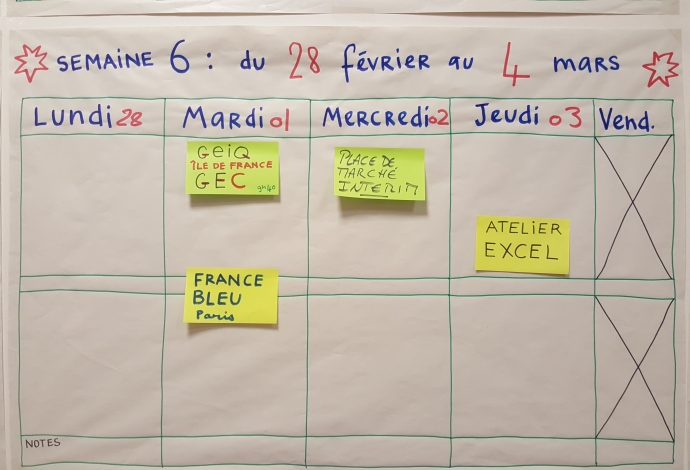 SEMAINE 6 : du 28 février au 4 mars
Lundi 28 Mardi 01 Mercredi 02 Jeudi 03 Vend.
GEIQ
ÎLE DE FRANCE
GEC
9h40
PLACE DE
MARCHÉ
INTERIM
ATELIER
EXCEL
FRANCE
BLEU
Paris
NOTES